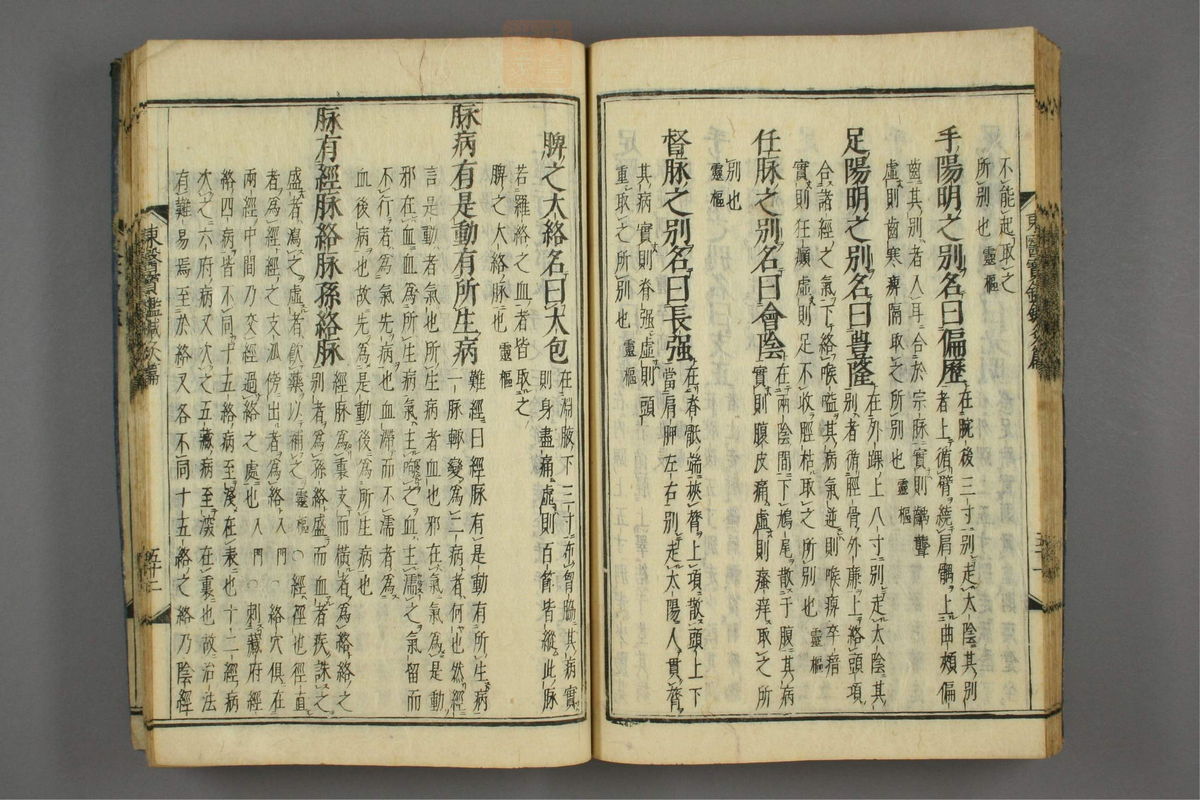 不能起取之
所別也 靈樞
手陽明之別名曰偏歷
在腕後三寸別走太陰其別
者上循臂繞肩髃上曲頰偏
齒其別者人耳合於宗脉實則齲聾
虛則齒寒痺隔取之所別也 靈樞
足陽明之別名曰豊隆
在外踝上八寸別走太陰其
別者循脛骨外廉上絡頭項
合諸經之氣下絡喉嗌其病氣逆則喉痺卒瘖
實則狂癲虛則足不收脛枯取之所別也 靈樞
任脉之別名曰會陰
在兩陰間下鳩尾散于腹其病
實則腹皮痛虛則瘙痒取之所
別也 靈樞
督脉之別名曰長强
在脊骶端挾膂上項散頭上下
當肩胛左右別走太陽人貫膂
其病實則脊强虛則頭
重取之所別也 靈樞
脾之大絡名曰大包
在淵腋下三寸布胷脇其病實
則身盡痛虛則百節皆縱此脉
若羅絡之血者皆取之
脾之大絡脉也 靈樞
脉病有是動有所生病
難經曰經脉有是動有所生病
一脉輒變爲二病者何也然經
言是動者氣也所生病者血也邪在氣氣爲是動
邪在血血爲所生病氣主呴之血主濡之氣留而
不行者爲氣先病也血滯而不濡者爲
血後病也故先爲是動後爲所生病也
脉有經脉絡脉孫絡脉
經脉爲裏支而橫者爲絡絡之
別者爲孫絡盛而血者疾誅之
盛者瀉之虛者飮藥以補之 靈樞 ○經徑也徑直
者爲經經之支派傍出者爲絡 入門 ○絡穴俱在
兩經中間乃交經過絡之處也 入門 ○刺藏府經
絡四病皆不同十五絡病至淺在表也十二經病
次之六府病又次之五藏病至深在裏也故治法
有難易焉至於絡又各不同十五絡之絡乃陰經
東醫寶鑑鍼灸篇
五十二